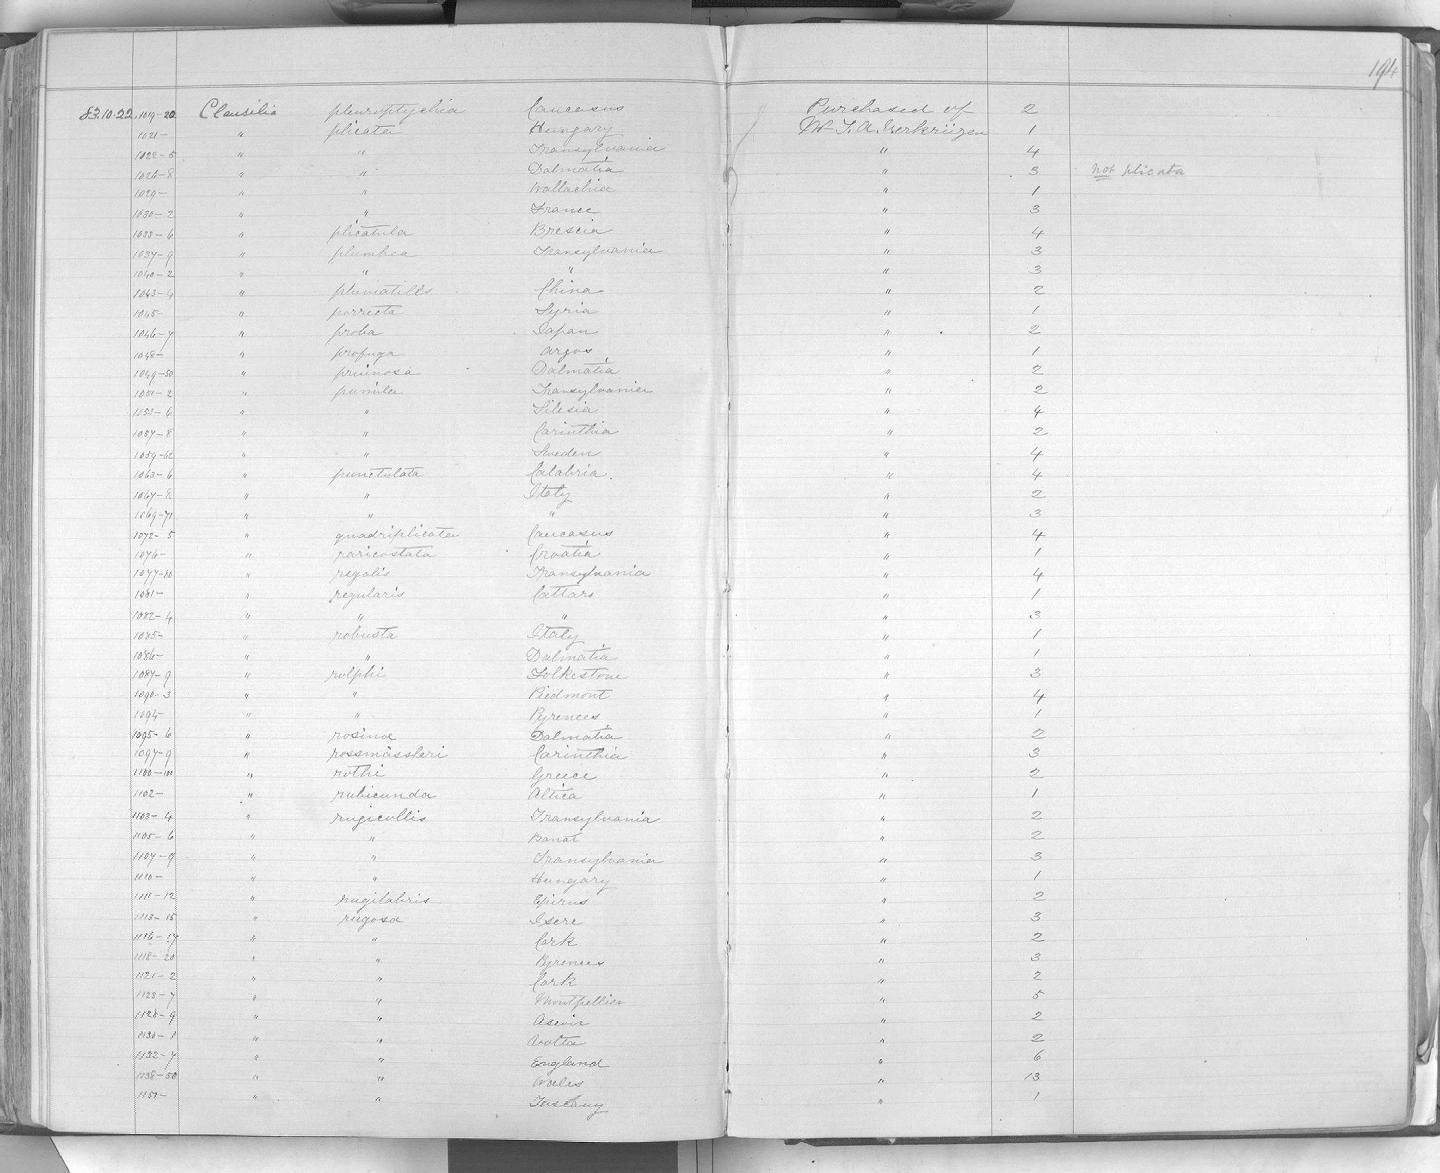 194
83.10.22. 1019-20 Clausilia pleuroptychia Caucasus Purchased of 2
1021- " plicata Hungary 1
1022-5 " " Transylvania " 4
1026-8 " " Dalmatia " 3 not plicata
1029- " " Wallachia " 1
1030-2 " " France " 3
1033-6 " plicatula Brescia " 4
1037-9 " plumbea Transylvania " 3
1040-2 " " " " 3
1043-4 " pluviatilis China " 2
1045- " porrecta Syria " 1
1046-7 " proba Japan " 2
1048- " profuga Argos " 1
1049-50 " pruinosa Dalmatia " 2
1051-2 " pumila Transylvania " 2
1053-6 " " Silesia " 4
1057-8 " " Carinthia " 2
1059-62 " " Sweden " 4
1063-6 " punctulata Calabria. " 4
1067-8 " " Italy " 2
1069-71 " " " " 3
1072-5 " quadriplicata Caucasus " 4
1076- " raricostata Croatia " 1
1077-80 " regalis Transylvania " 4
1081- " regularis Cattaro " 1
1082-4 " " " " 3
1085- " robusta Italy " 1
1086- " " Dalmatia " 1
1087-9 " rolphi Folkestone " 3
1090-3 " " Piedmont " 4
1094- " " Pyrenees " 1
1095-6 " rosinae Dalmatia " 2
1097-9 " rossmässleri Carinthia " 3
1100-1101 " rothi Greece " 2
1102- " rubicunda Attica " 1
1103-4 " rugicollis Transylvania " 2
1105-6 " " Banat " 2
1107-9 " " Transylvania " 3
1110- " " Hungary " 1
1111-12 " rugilabris Epirus " 2
1113-15 " rugosa Isere " 3
1116-17 " " Cork " 2
1118-20 " " Pyrenees " 3
1121-2 " " Cork " 2
1123-7 " " Montpellier " 5
1128-9 " " " 2
1130-1 " " " 2
1132-7 " " England " 6
1138-50 " " Wales " 13
1151- " " Tuscany " 1